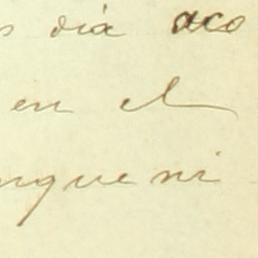 s dia aco
en el
nque ni